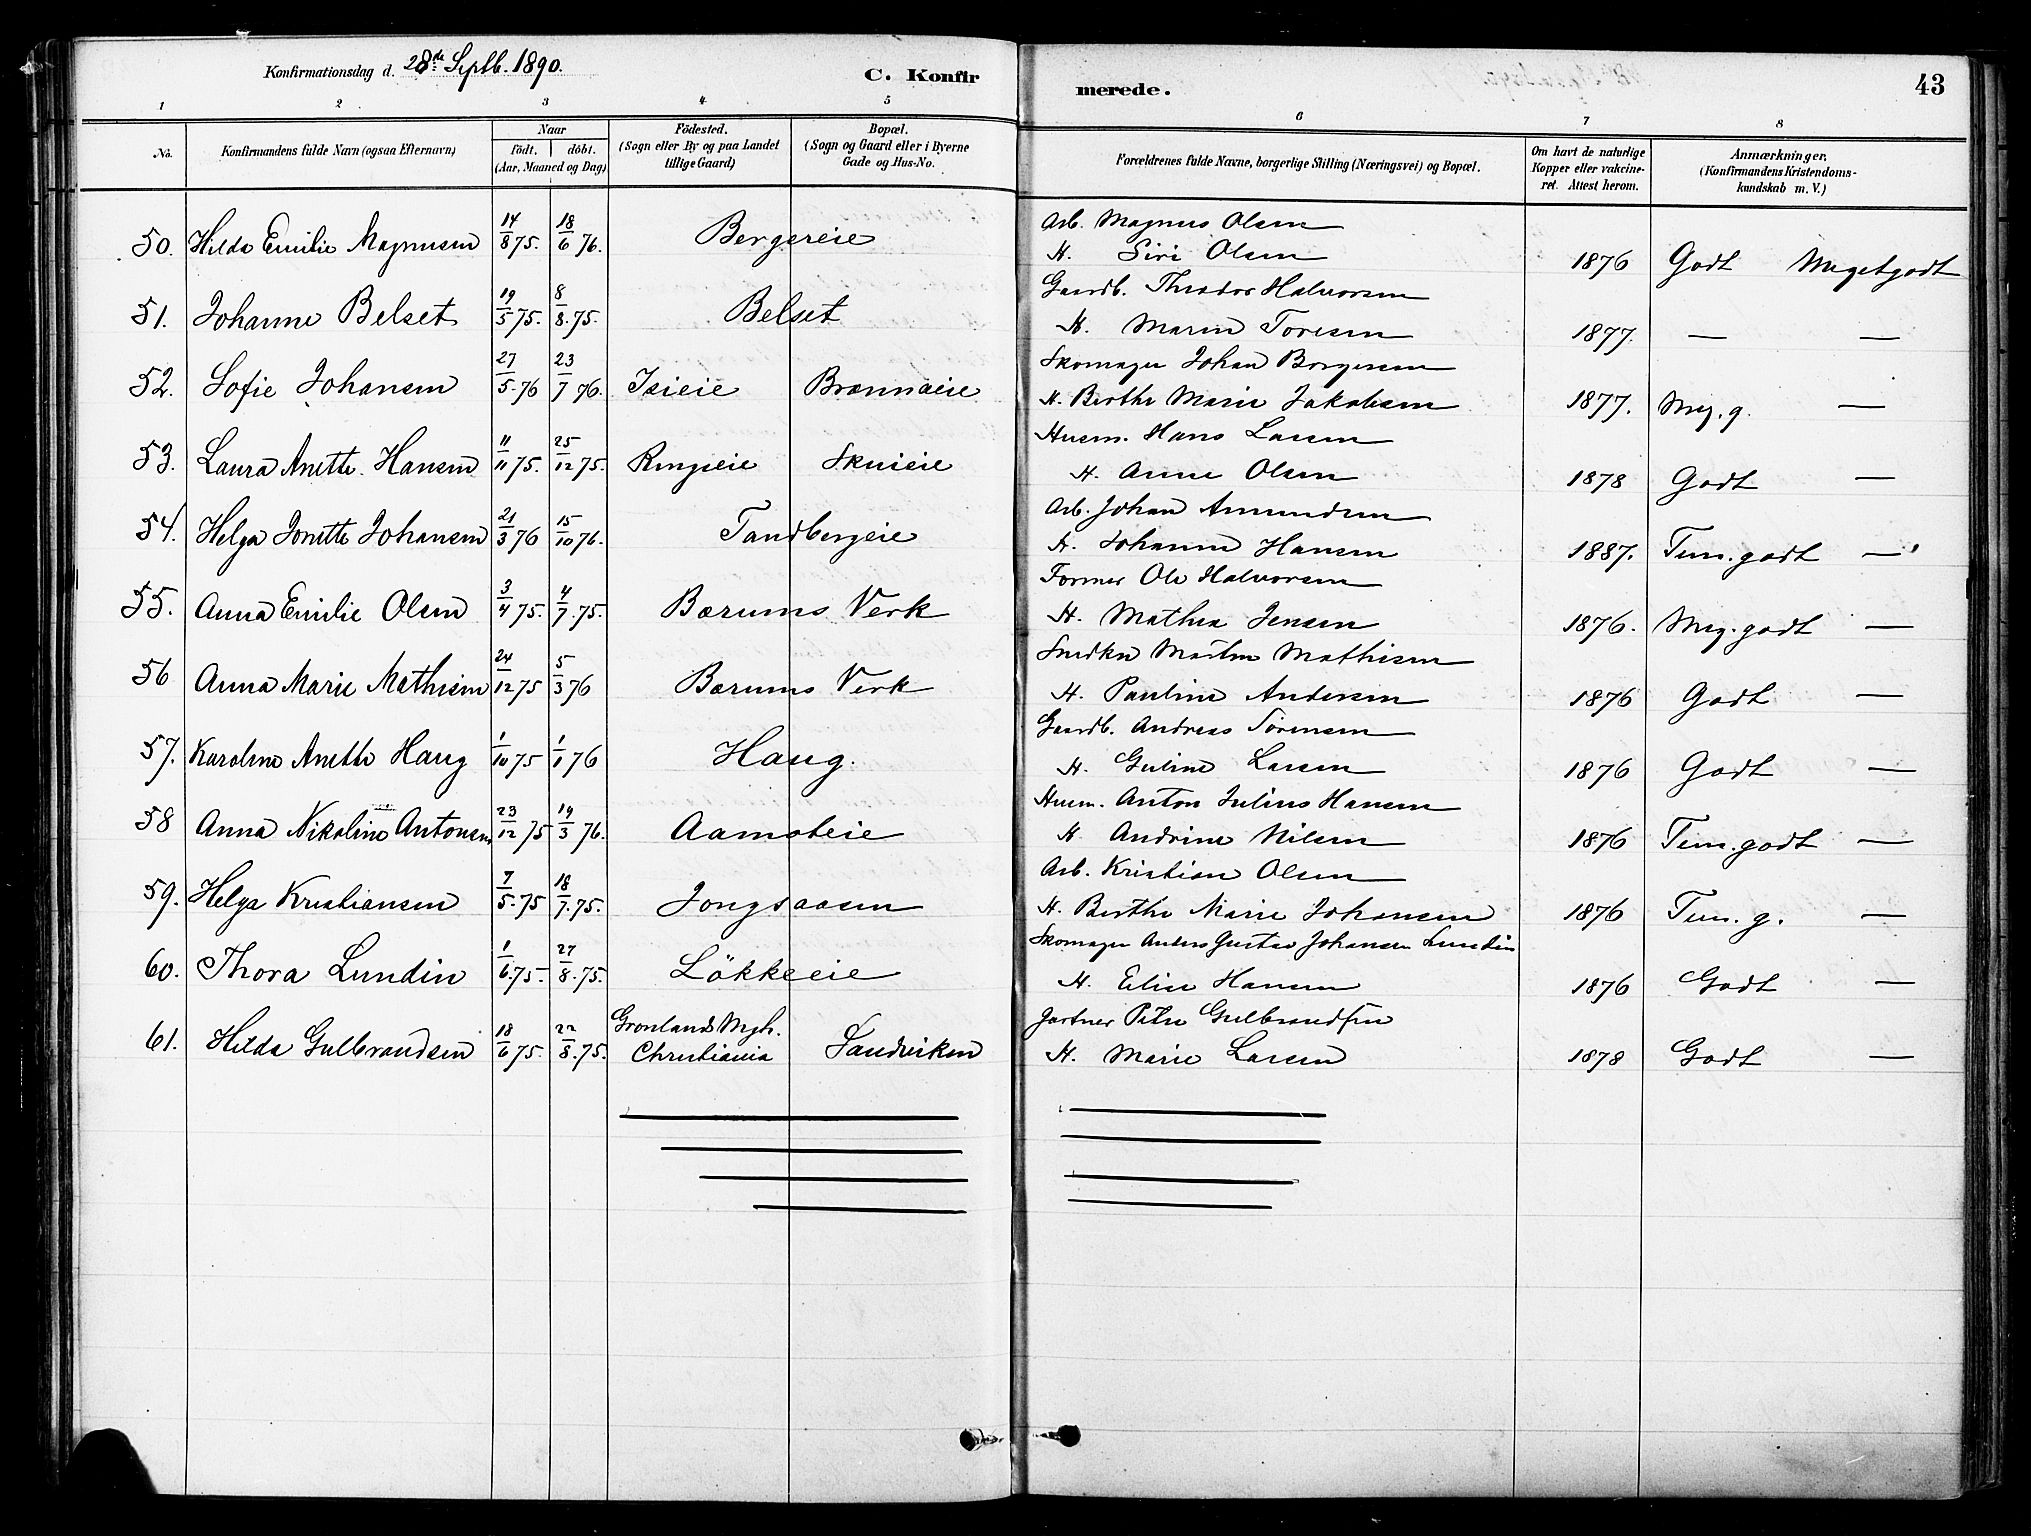 Konfirmationsdag d. 28de Septb. 1890.
C. Konfirmerede.
43
1 2 3 4 5 6 7 8
No.
Konfirmandens fulde Navn (ogsaa Efternavn)
Naar
födt. döbt.
(Aar, Maaned og Dag)
Födested.
(Sogn eller By og paa Landet
tillige Gaard)
Bopæl.
(Sogn og Gaard eller i Byerne
Gade og Hus-No.
Forældrenes fulde Navne, borgerlige Stilling (Næringsvei) og Bopæl.
Om havt de naturlige
Kopper eller vakcine-
ret. Attest herom.
Anmærkninger.
(Konfirmandens Kristendoms-
kundskab m. V.)
Arb. Magnus Olsen
50. Hilda Emilie Magnusen 14/8 75. 18/6 76. Bergereie H. Siri Olsen 1876 Godt Megetgodt
Gaardb. Theodor Halvorsen
51. Johanne Belset 19/5 75. 8/8. 75. Belset H. Maren Toresen 1877. — —
Skomager Johan Borgersen
52. Sofie Johansen 27/5. 76 23/7 76. Isieie Brænnaeie H. Berthe Marie Jakobsen 1877. Meg. g. —
Husm. Hans Larsen
53. Laura Anette Hansen 11/11 75. 25/12 75. Ringieie Skuieie H. Anne Olsen 1878 Godt —
Arb. Johan Amundsen
54. Helga Jonette Johansen 21/3 76 15/10 76. Tandbergeie H. Johanne Hansen 1887. Tem. godt —
Former Ole Halvorsen
55. Anna Emilie Olsen 3/4 75. 4/7. 75. Bærums Verk H. Mathea Jensen 1876. Meg. godt —
Snedker Martin Mathisen
56 Anna Marie Mathisen 24/12 75 5/3 76 Bærums Verk H. Pauline Andersen 1876 Godt —
Gaardb. Andreas Sørensen
57. Karoline Anette Haug 1/10 75 1/1 76 Haug. H. Guline Larsen 1876 Godt —
Husm. Anton Julius Hansen
58 Anna Nikoline Antonsen 23/12 75 19/3 76. Aamoteie H. Andrine Nilsen 1876 Tem. godt —
Arb. Kristian Olsen
59. Helga Kristiansen 7/5. 75 18/7. 75. Jongsaasen H. Berthe Marie Johansen 1876 Tem. g. —
Skomager Anders Gustav Johansen Lundin
60. Thora Lundin 1/6. 75. 27/8. 75. Lökkeeie H. Elise Hansen 1876 Godt —
Grønlands Mgh. Gartner Peter Gulbrandsen
61. Hilda Gulbrandsen 18/6 75. 22/8. 75. Christiania Sandviken H. Marie Larsen 1878 Godt —